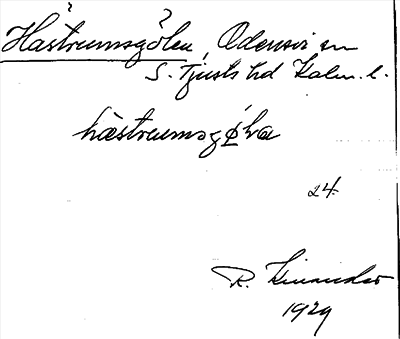 Hästrumsgölen, Odensvi sn
S. Tjusts hd Kalm. l.
hæstrumsgøḷva
24.
R. Kinander
1929